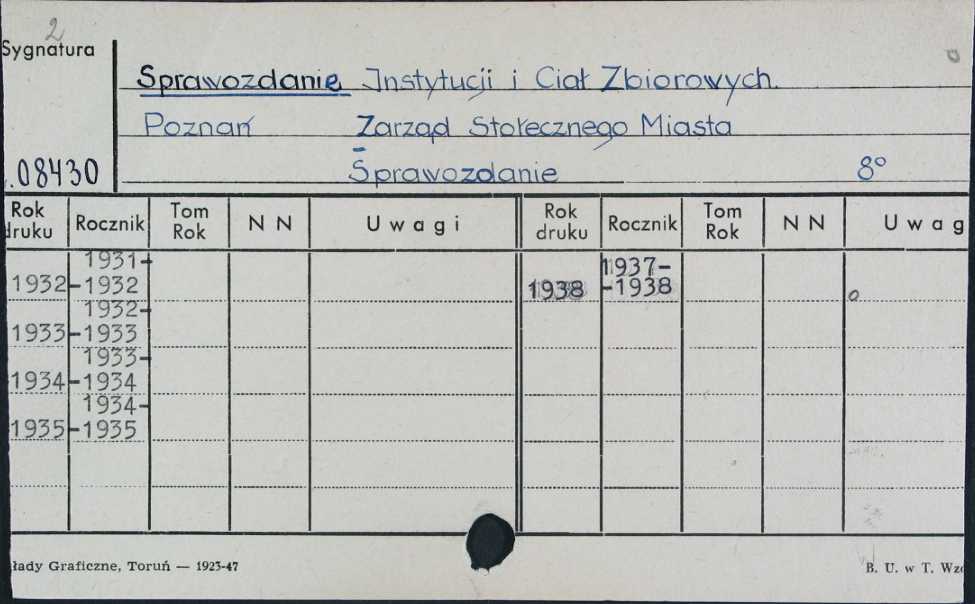 2
Sygnatura
Sprawozdanie Instytucji i Ciał Zbiorowych.
Poznań Zarząd Stołecznego Miasta
.08430 Sprawozdanie 8°
Rok druku Rocznik Tom Rok N N Uwagi Rok druku Rocznik Tom Rok N N Uwag
1931- 1937-
1932-1932 1938 -1938
1932-
1933-1933
1933-
1934-1934
1934-
1935-1935
łady Graficzne, Toruń — 1923-47 B. U. w T. Wzo